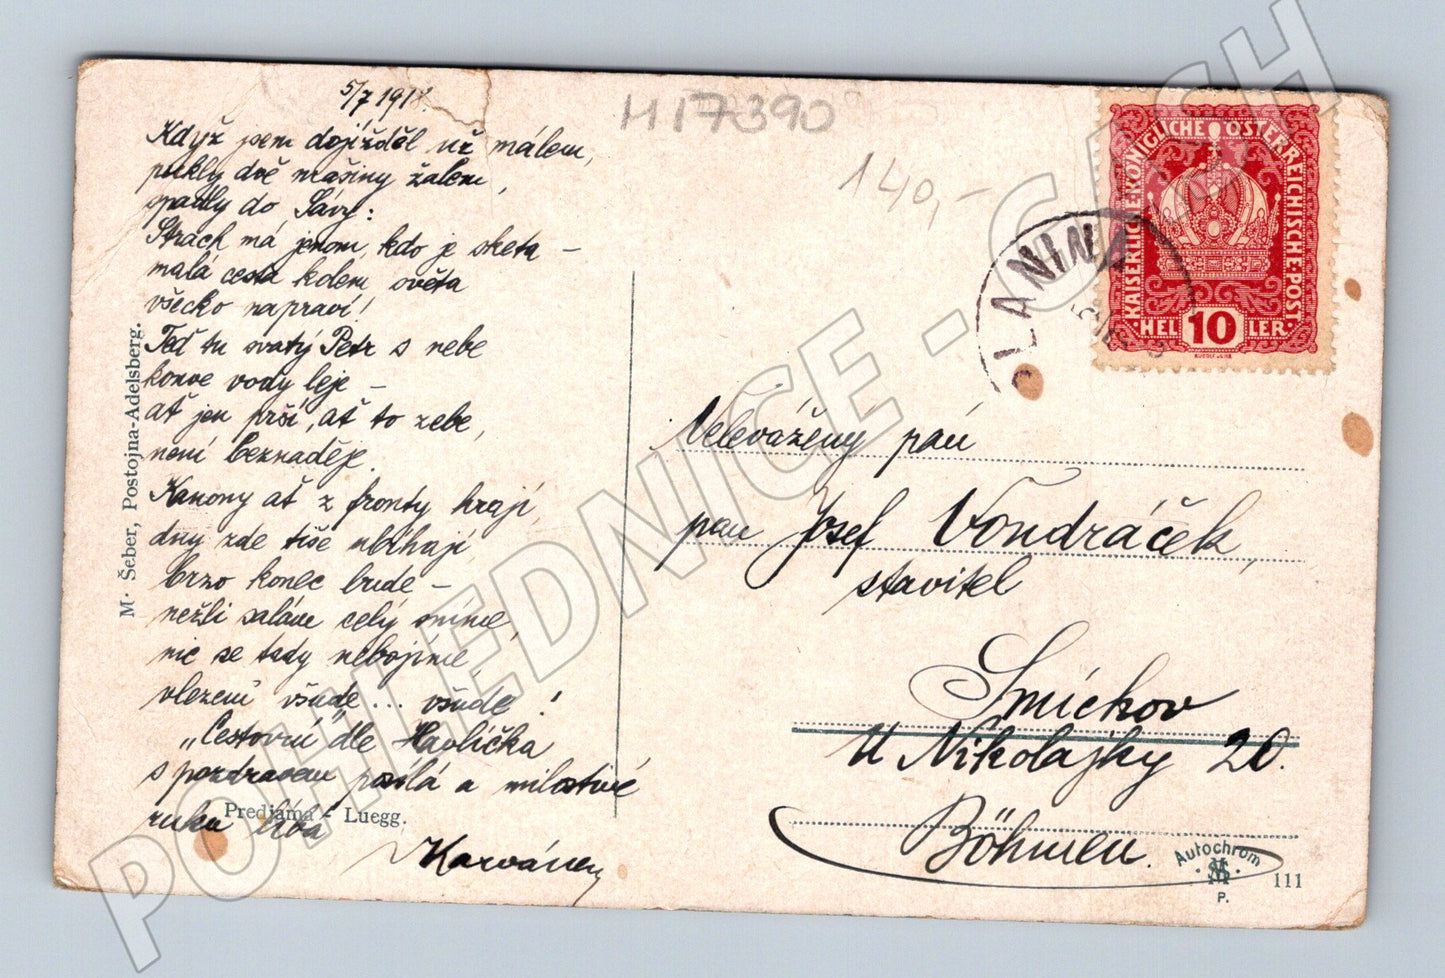 5/7 1918.
Když jsem dojížděl už málem,
pukly dvě mašiny žalem,
spadly do Sávy:
Strach má jenom kdo je sketa –
malá cesta kolem světa
všecko napraví!
Teď tu svatý Petr s nebe
konve vody leje –
ať jen prší, ať to zebe,
není beznaděje.
Kanony ať z fronty hrají,
dny zde tiše ubíhají
brzo konec bude –
nežli salám celý sníme,
nic se tady nebojíme,
vlezem všude... všude!
„Cestovní" dle Havlíčka
s pozdravem posílá a milostivé
ruku líbá
M. Šeber, Postojna-Adelsberg.
Predjama - Luegg.
H17390
140,-
PLANINA
KAISERLICHE·KÖNIGLICHE ÖSTERREICHISCHE·POST
HEL 10 LER
Velevážený pán
pan Josef Vondráček,
stavitel
Smíchov
U Nikolajky 20.
Böhmen.
Autochrom
P.
111
POHLEDNICE - CASH